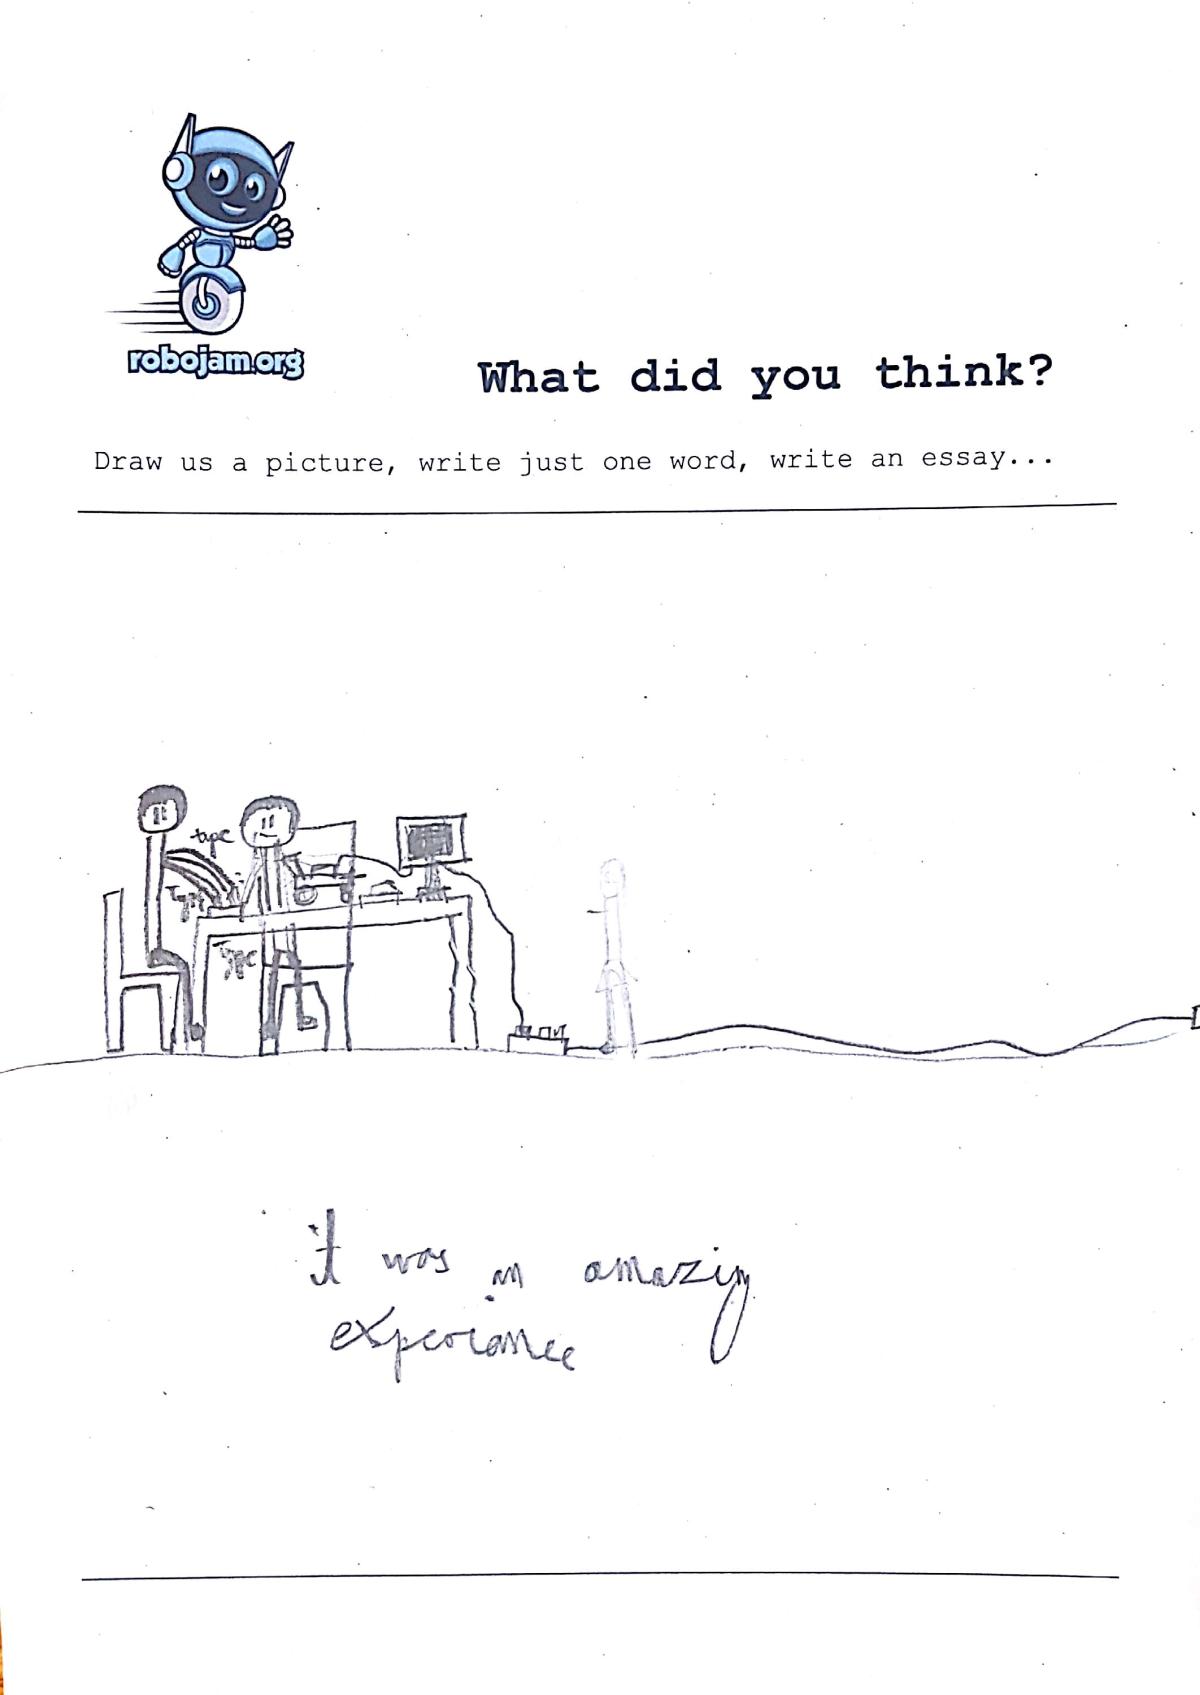 robojam.org
What did you think?
Draw us a picture, write just one word, write an essay...
type
type
type
it was an amazing
experiance